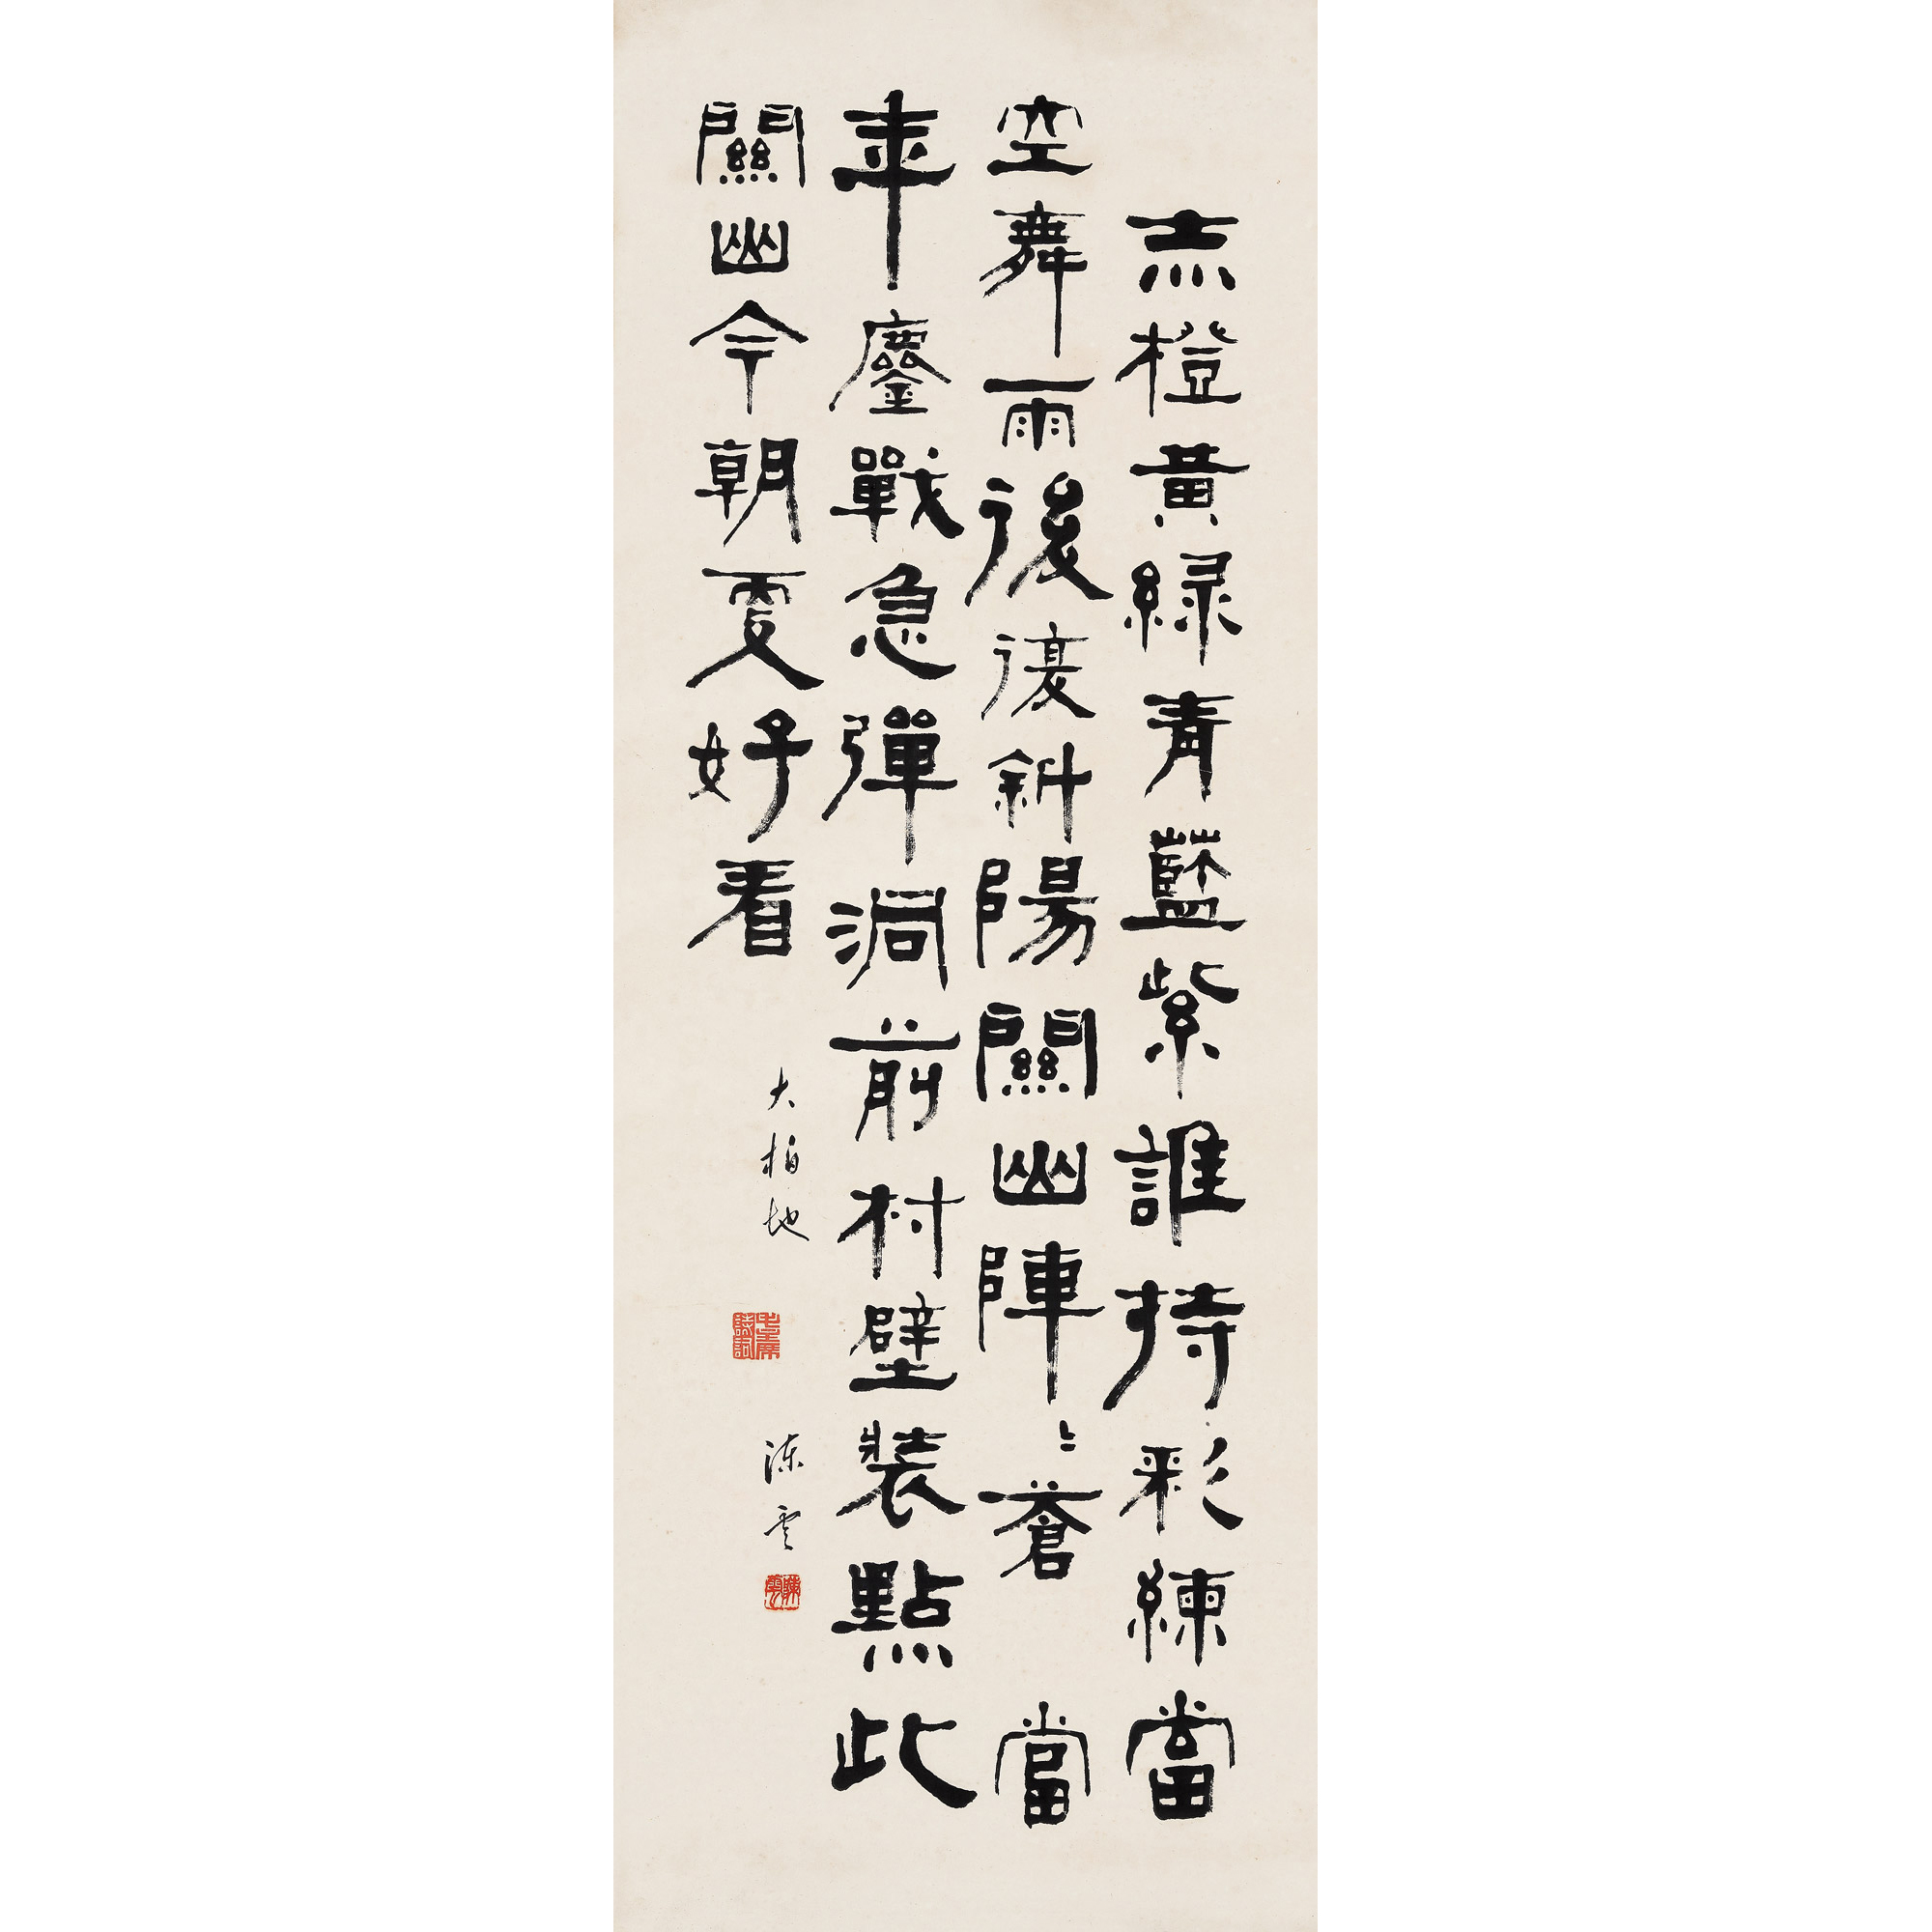 赤橙黃緑青藍紫誰持彩練當
空舞雨後復斜陽關山陣〻蒼當
年鏖戰急彈洞前村壁裝點此
關山今朝更好看
大柏地
毛主席詩詞
陳雲
陳雲